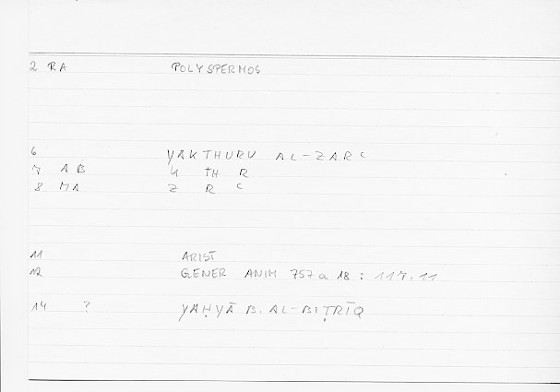 2 RA POLYSPERMOS
6 YAKTHURU AL-ZARC
7 AB K TH R
8 MA Z R C
11 ARIST
12 GENER ANIM 757a 18 : 117.11
14 ? YAḤYĀ B. AL-BIṬRĪQ